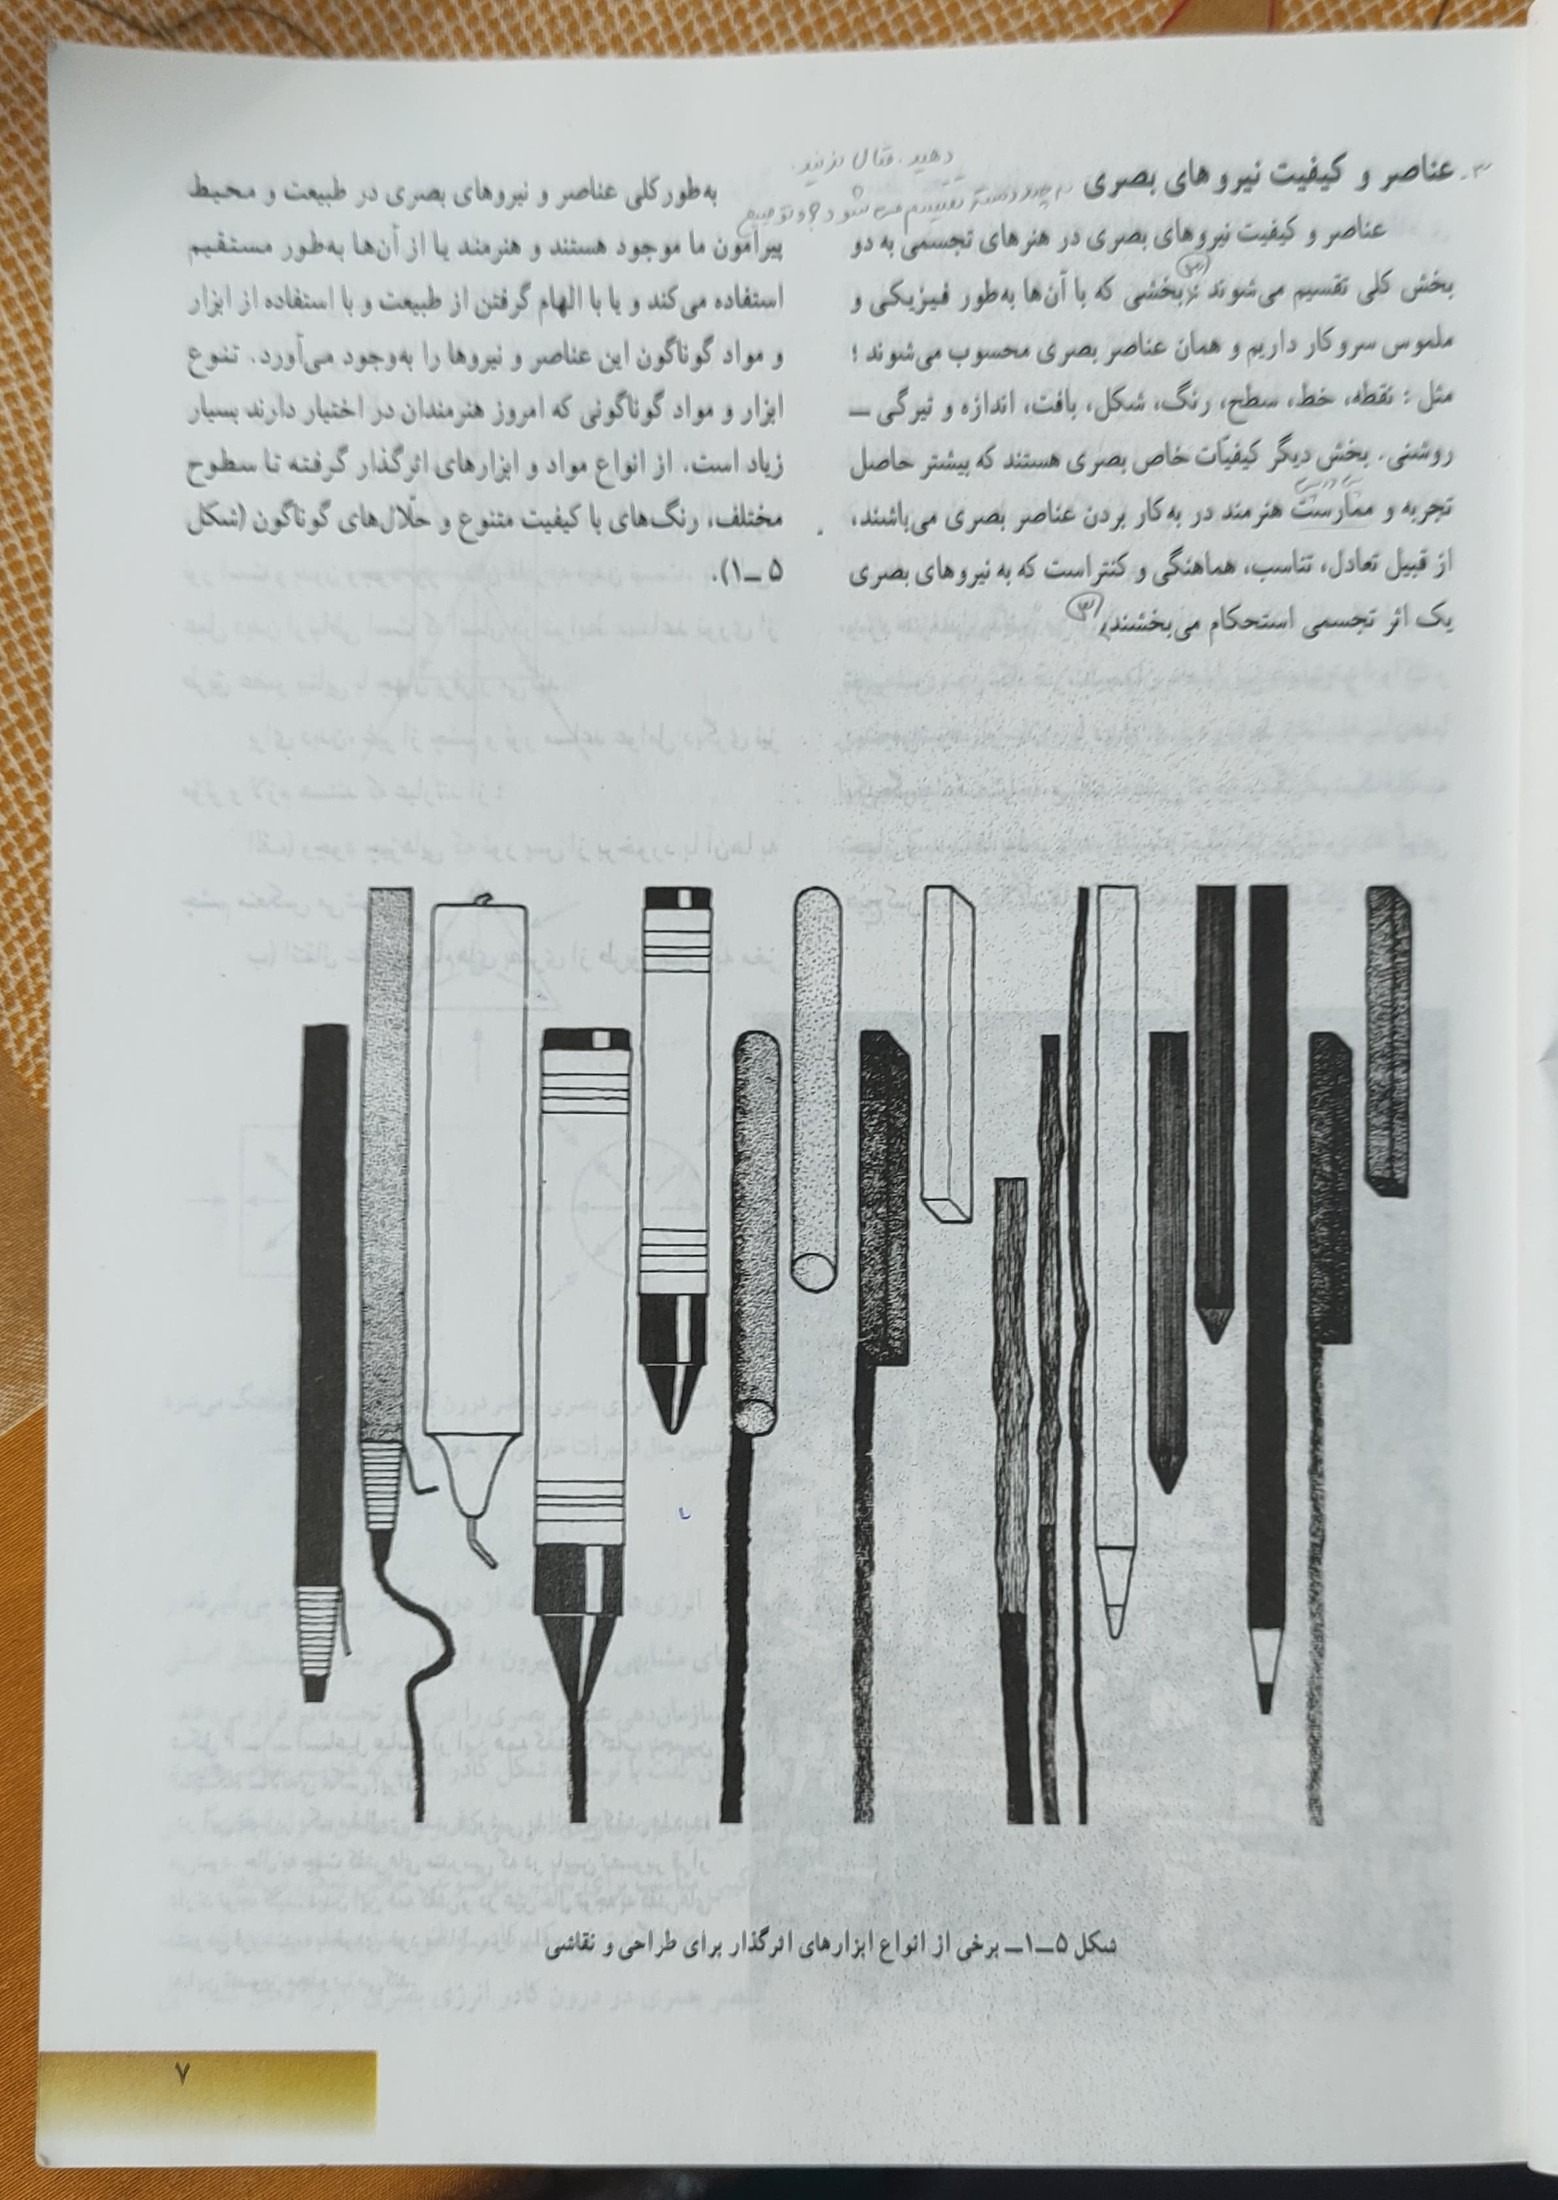 ۳- عناصر و کیفیت نیروهای بصری به چند دسته تقسیم می‌شود؟ توضیح
دهید. مثال بزنید.
عناصر و کیفیت نیروهای بصری در هنرهای تجسمی به دو
بخش کلی تقسیم می‌شوند : بخشی که با آن‌ها به‌طور فیزیکی و
(۳)
ملموس سروکار داریم و همان عناصر بصری محسوب می‌شوند ؛
مثل : نقطه، خط، سطح، رنگ، شکل، بافت، اندازه و تیرگی ــ
روشنی. بخش دیگر کیفیّات خاص بصری هستند که بیشتر حاصل
تجربه و ممارست هنرمند در به‌کار بردن عناصر بصری می‌باشند،
از قبیل تعادل، تناسب، هماهنگی و کنتراست که به نیروهای بصری
یک اثر تجسمی استحکام می‌بخشند. (۳)
به‌طورکلی عناصر و نیروهای بصری در طبیعت و محیط
پیرامون ما موجود هستند و هنرمند یا از آن‌ها به‌طور مستقیم
استفاده می‌کند و یا با الهام گرفتن از طبیعت و با استفاده از ابزار
و مواد گوناگون این عناصر و نیروها را به‌وجود می‌آورد. تنوع
ابزار و مواد گوناگونی که امروز هنرمندان در اختیار دارند بسیار
زیاد است. از انواع مواد و ابزارهای اثرگذار گرفته تا سطوح
مختلف، رنگ‌های با کیفیت متنوع و حلّال‌های گوناگون (شکل
۵ ــ۱).
شکل ۵ــ۱ــ برخی از انواع ابزارهای اثرگذار برای طراحی و نقاشی
۷